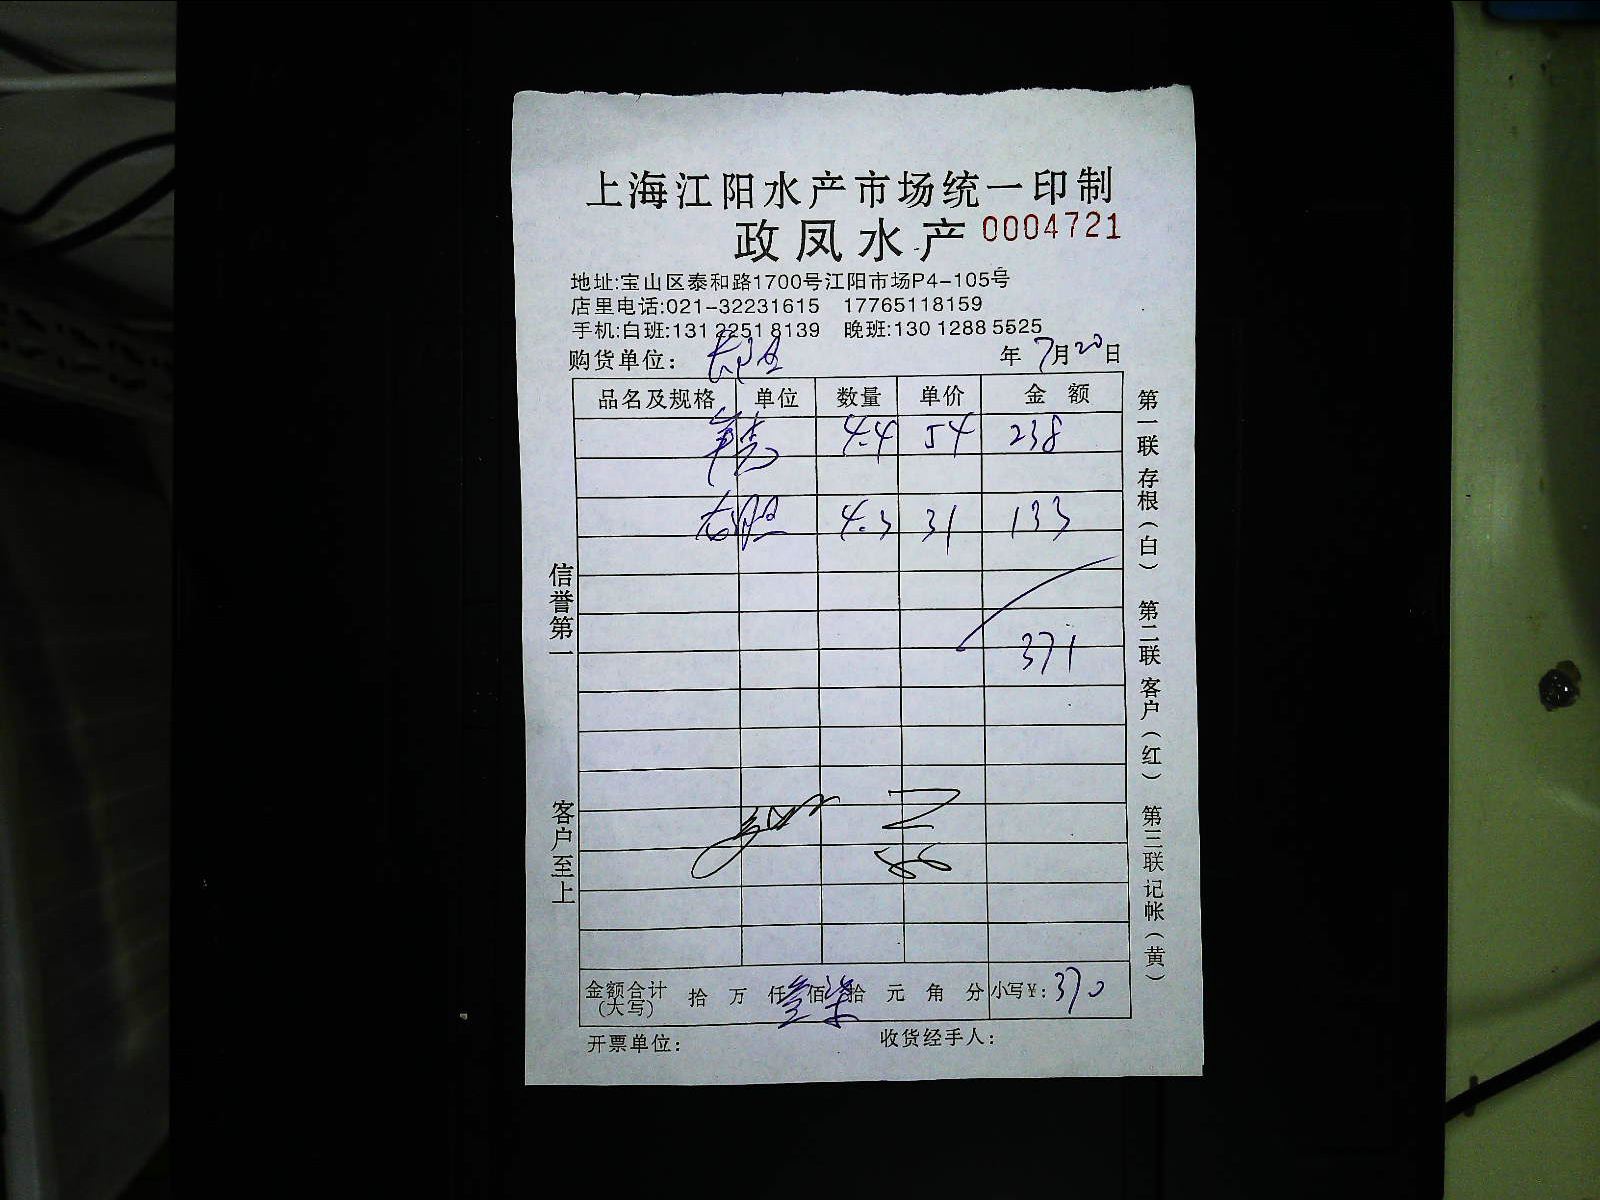 上海江阳水产市场统一印制
政凤水产 0004721
地址:宝山区泰和路1700号江阳市场P4-105号
店里电话:021-32231615 17765118159
手机:白班:131 2251 8139 晚班:130 1288 5525
购货单位: 年 7月20日
品名及规格 单位 数量 单价 金 额
4.4 54 238
4.3 31 133
371
金额合计(大写) 拾 万 仟 叁 佰 柒 拾 元 角 分 小写¥: 370
开票单位: 收货经手人:
信誉第一 客户至上
第一联 存根(白) 第二联 客户(红) 第三联 记帐(黄)